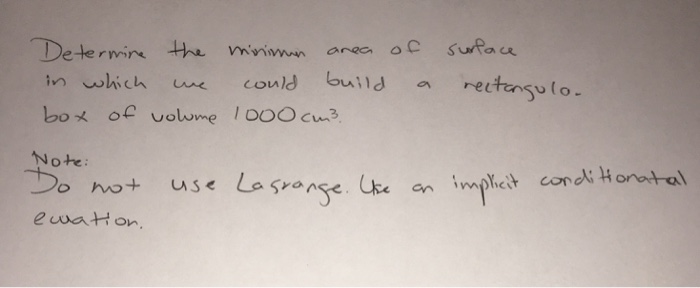 Determine the minimun area of surface
in which we could build a rectangulo-
box of volume 1000 cm³.
Note:
Do not use Lagrange. Use an implicit conditionatal
ewation.